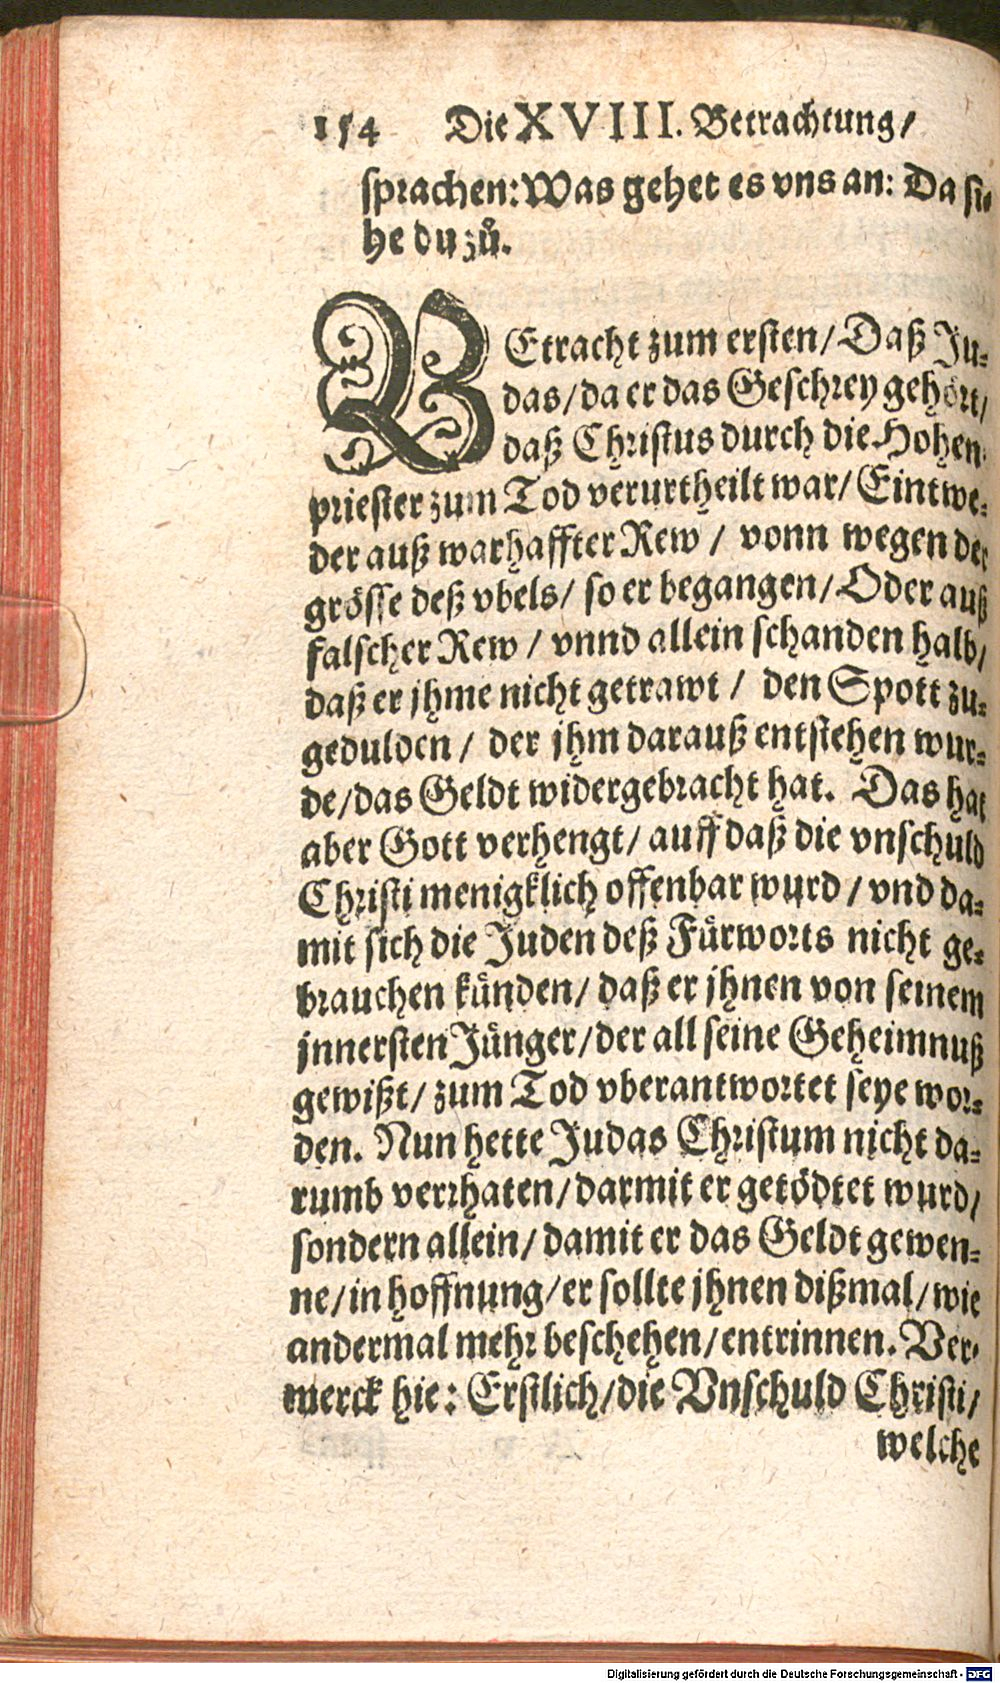 154 Die XVIII. Betrachtung/
sprachen: Was gehet es vns an: Da sie⸗
he du zů.
BEtracht zum ersten/ Daß Ju⸗
das/ da er das Geschrey gehört/
daß Christus durch die Hohen⸗
priester zum Tod verurtheilt war/ Eintwe⸗
der auß warhaffter Rew / vonn wegen der
grösse deß vbels/ so er begangen/ Oder auß
falscher Rew / vnnd allein schanden halb/
daß er jhme nicht getrawt / den Spott zu⸗
gedulden / der jhm darauß entstehen wur⸗
de/ das Geldt widergebracht hat. Das hat
aber Gott verhengt/ auff daß die vnschuld
Christi menigklich offenbar wurd / vnd da⸗
mit sich die Juden deß Fürworts nicht ge⸗
brauchen künden/ daß er jhnen von seinem
jnnersten Jünger/ der all seine Geheimnuß
gewißt/ zum Tod vberantwortet seye wor⸗
den. Nun hette Judas Christum nicht da⸗
rumb verrhaten/ darmit er getödtet wurd/
sondern allein/ damit er das Geldt gewen⸗
ne/ in hoffnung/ er sollte jhnen dißmal/ wie
andermal mehr beschehen/ entrinnen. Ver⸗
merck hie: Erstlich/ die Vnschuld Christi/
welche
Digitalisierung gefördert durch die Deutsche Forschungsgemeinschaft - DFG